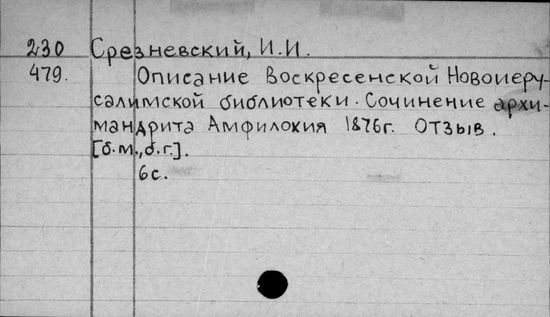 230 Срезневский, И.И.
479. Описание Воскресенской Новоиеру-
салимской библиотеки. Сочинение архи-
мандрита Амфилохия 1876г. Отзыв.
[б.м., б.г.].
6с.